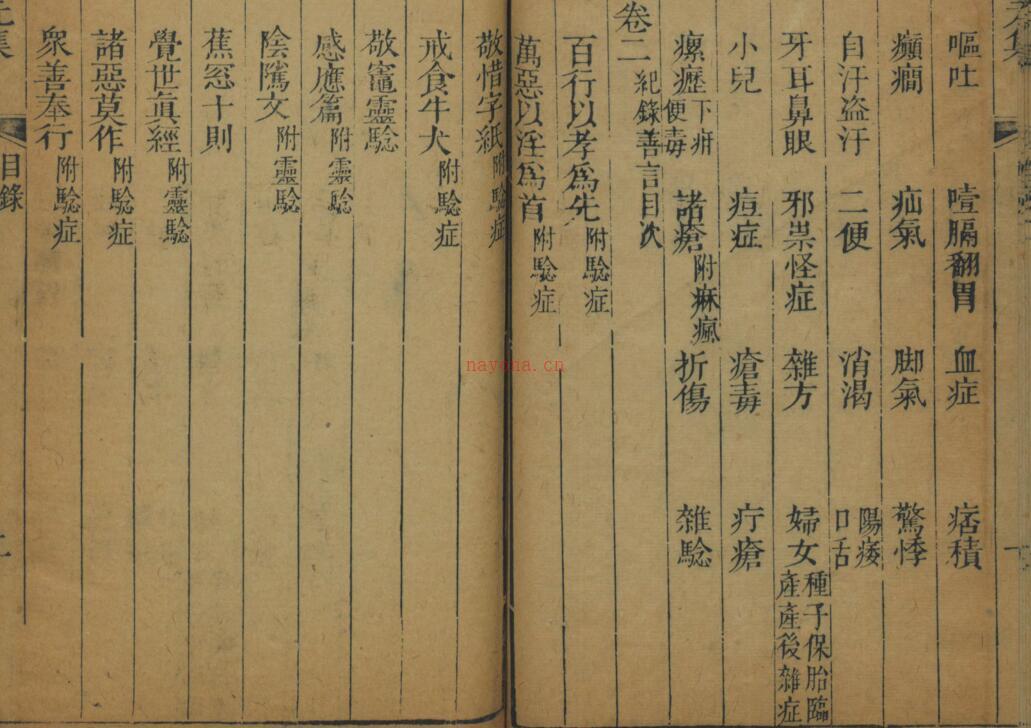 嘔吐 噎膈翻胃 血症 痞積
癲癇 疝氣 脚氣 驚悸
自汗盗汗 二便 消渴 陽痿口舌
牙耳鼻眼 邪祟怪症 雜方 婦女種子保胎臨產產後雜症
小兒 痘症 瘡毒 疔瘡
瘰癧下疳便毒 諸瘡附麻瘋 折傷 雜騐
卷二 紀錄善言目次
百行以孝爲先附騐症
萬惡以淫爲首附騐症
敬惜字紙附騐症
戒食牛犬附騐症
敬竈靈騐
感應篇附靈騐
陰隲文附靈騐
蕉窓十則
覺世眞經附靈騐
諸惡莫作附騐症
衆善奉行附騐症
目錄
nayona.cn